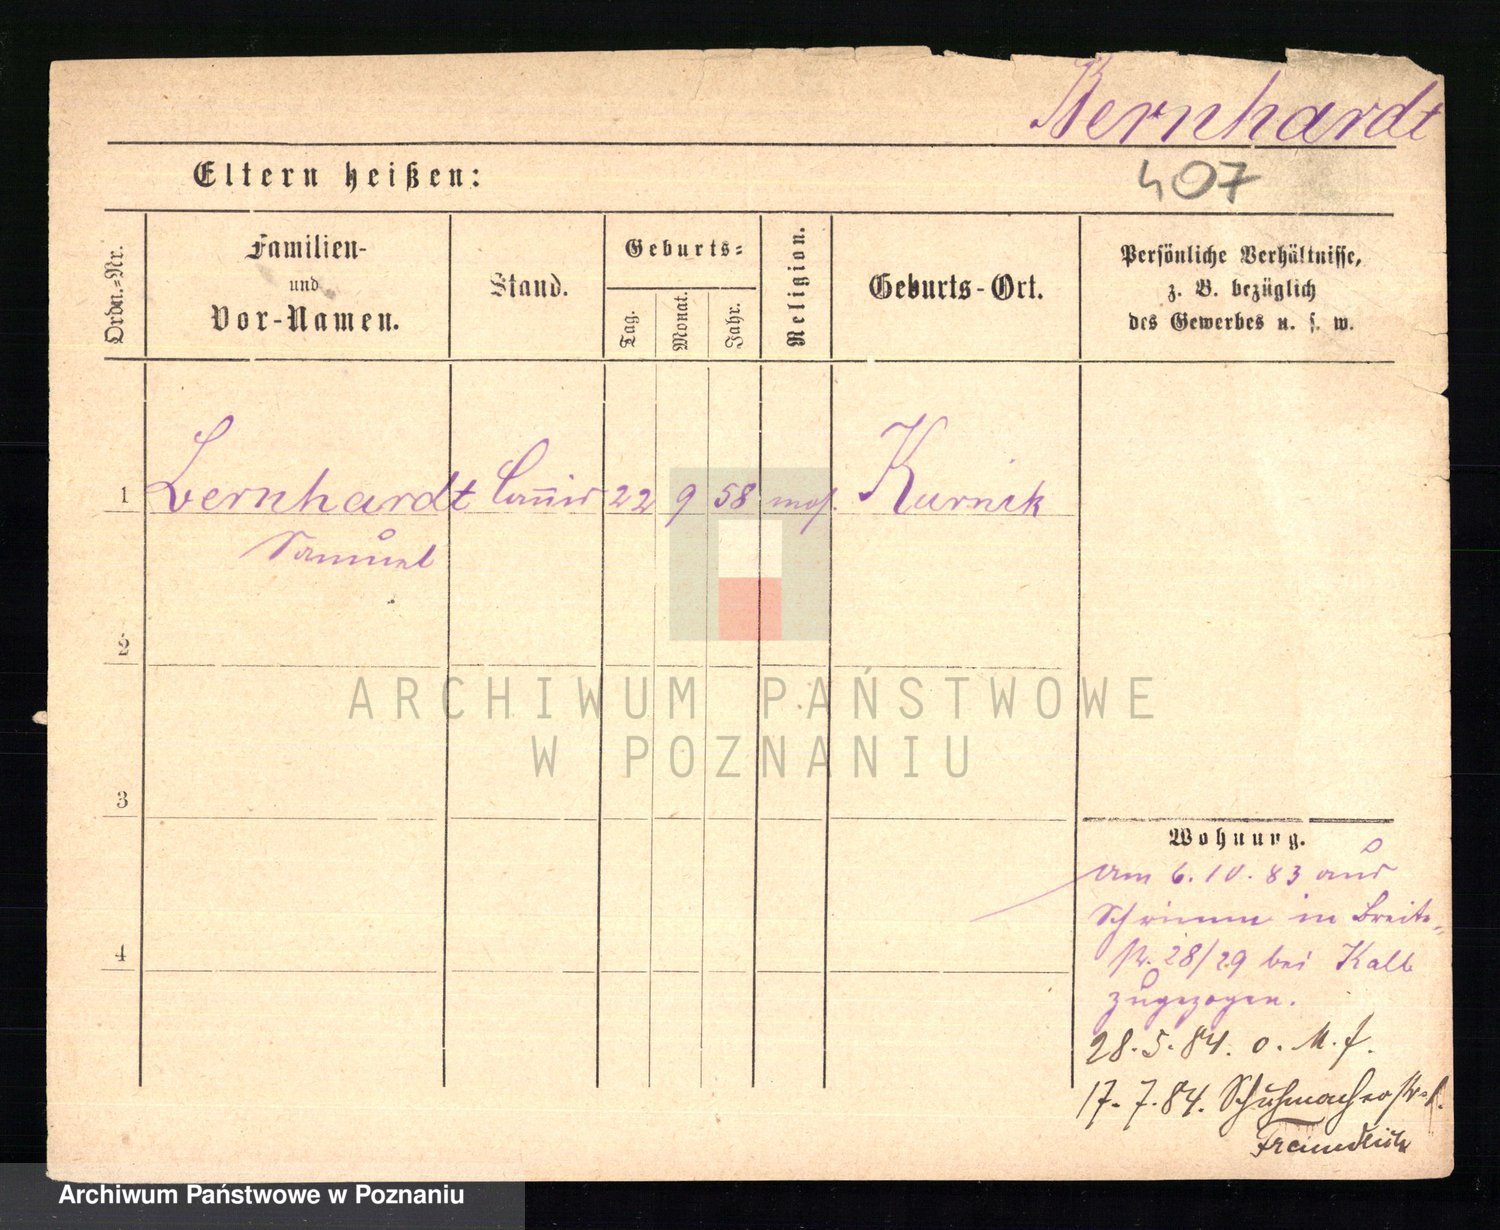 Bernhardt
407
Eltern heißen:
Ordn.-Nr.
Familien-
und
Vor-Namen.
Stand.
Geburts-
Tag.
Monat.
Jahr.
Religion.
Geburts-Ort.
Persönliche Verhältnisse,
z. B. bezüglich
des Gewerbes u. s. w.
1 Bernhardt 22 9 58 mos. Kurnik
Samuel
2
3
4
ARCHIWUM PAŃSTWOWE
W POZNANIU
Wohnung.
Am 6.10.83 aus
Schrimm in Breite-
str. 28/29 bei Kalb
zugezogen.
28.5.84. o. M. f.
17.7.84. Schuhmacherstr.
Freundlich
Archiwum Państwowe w Poznaniu